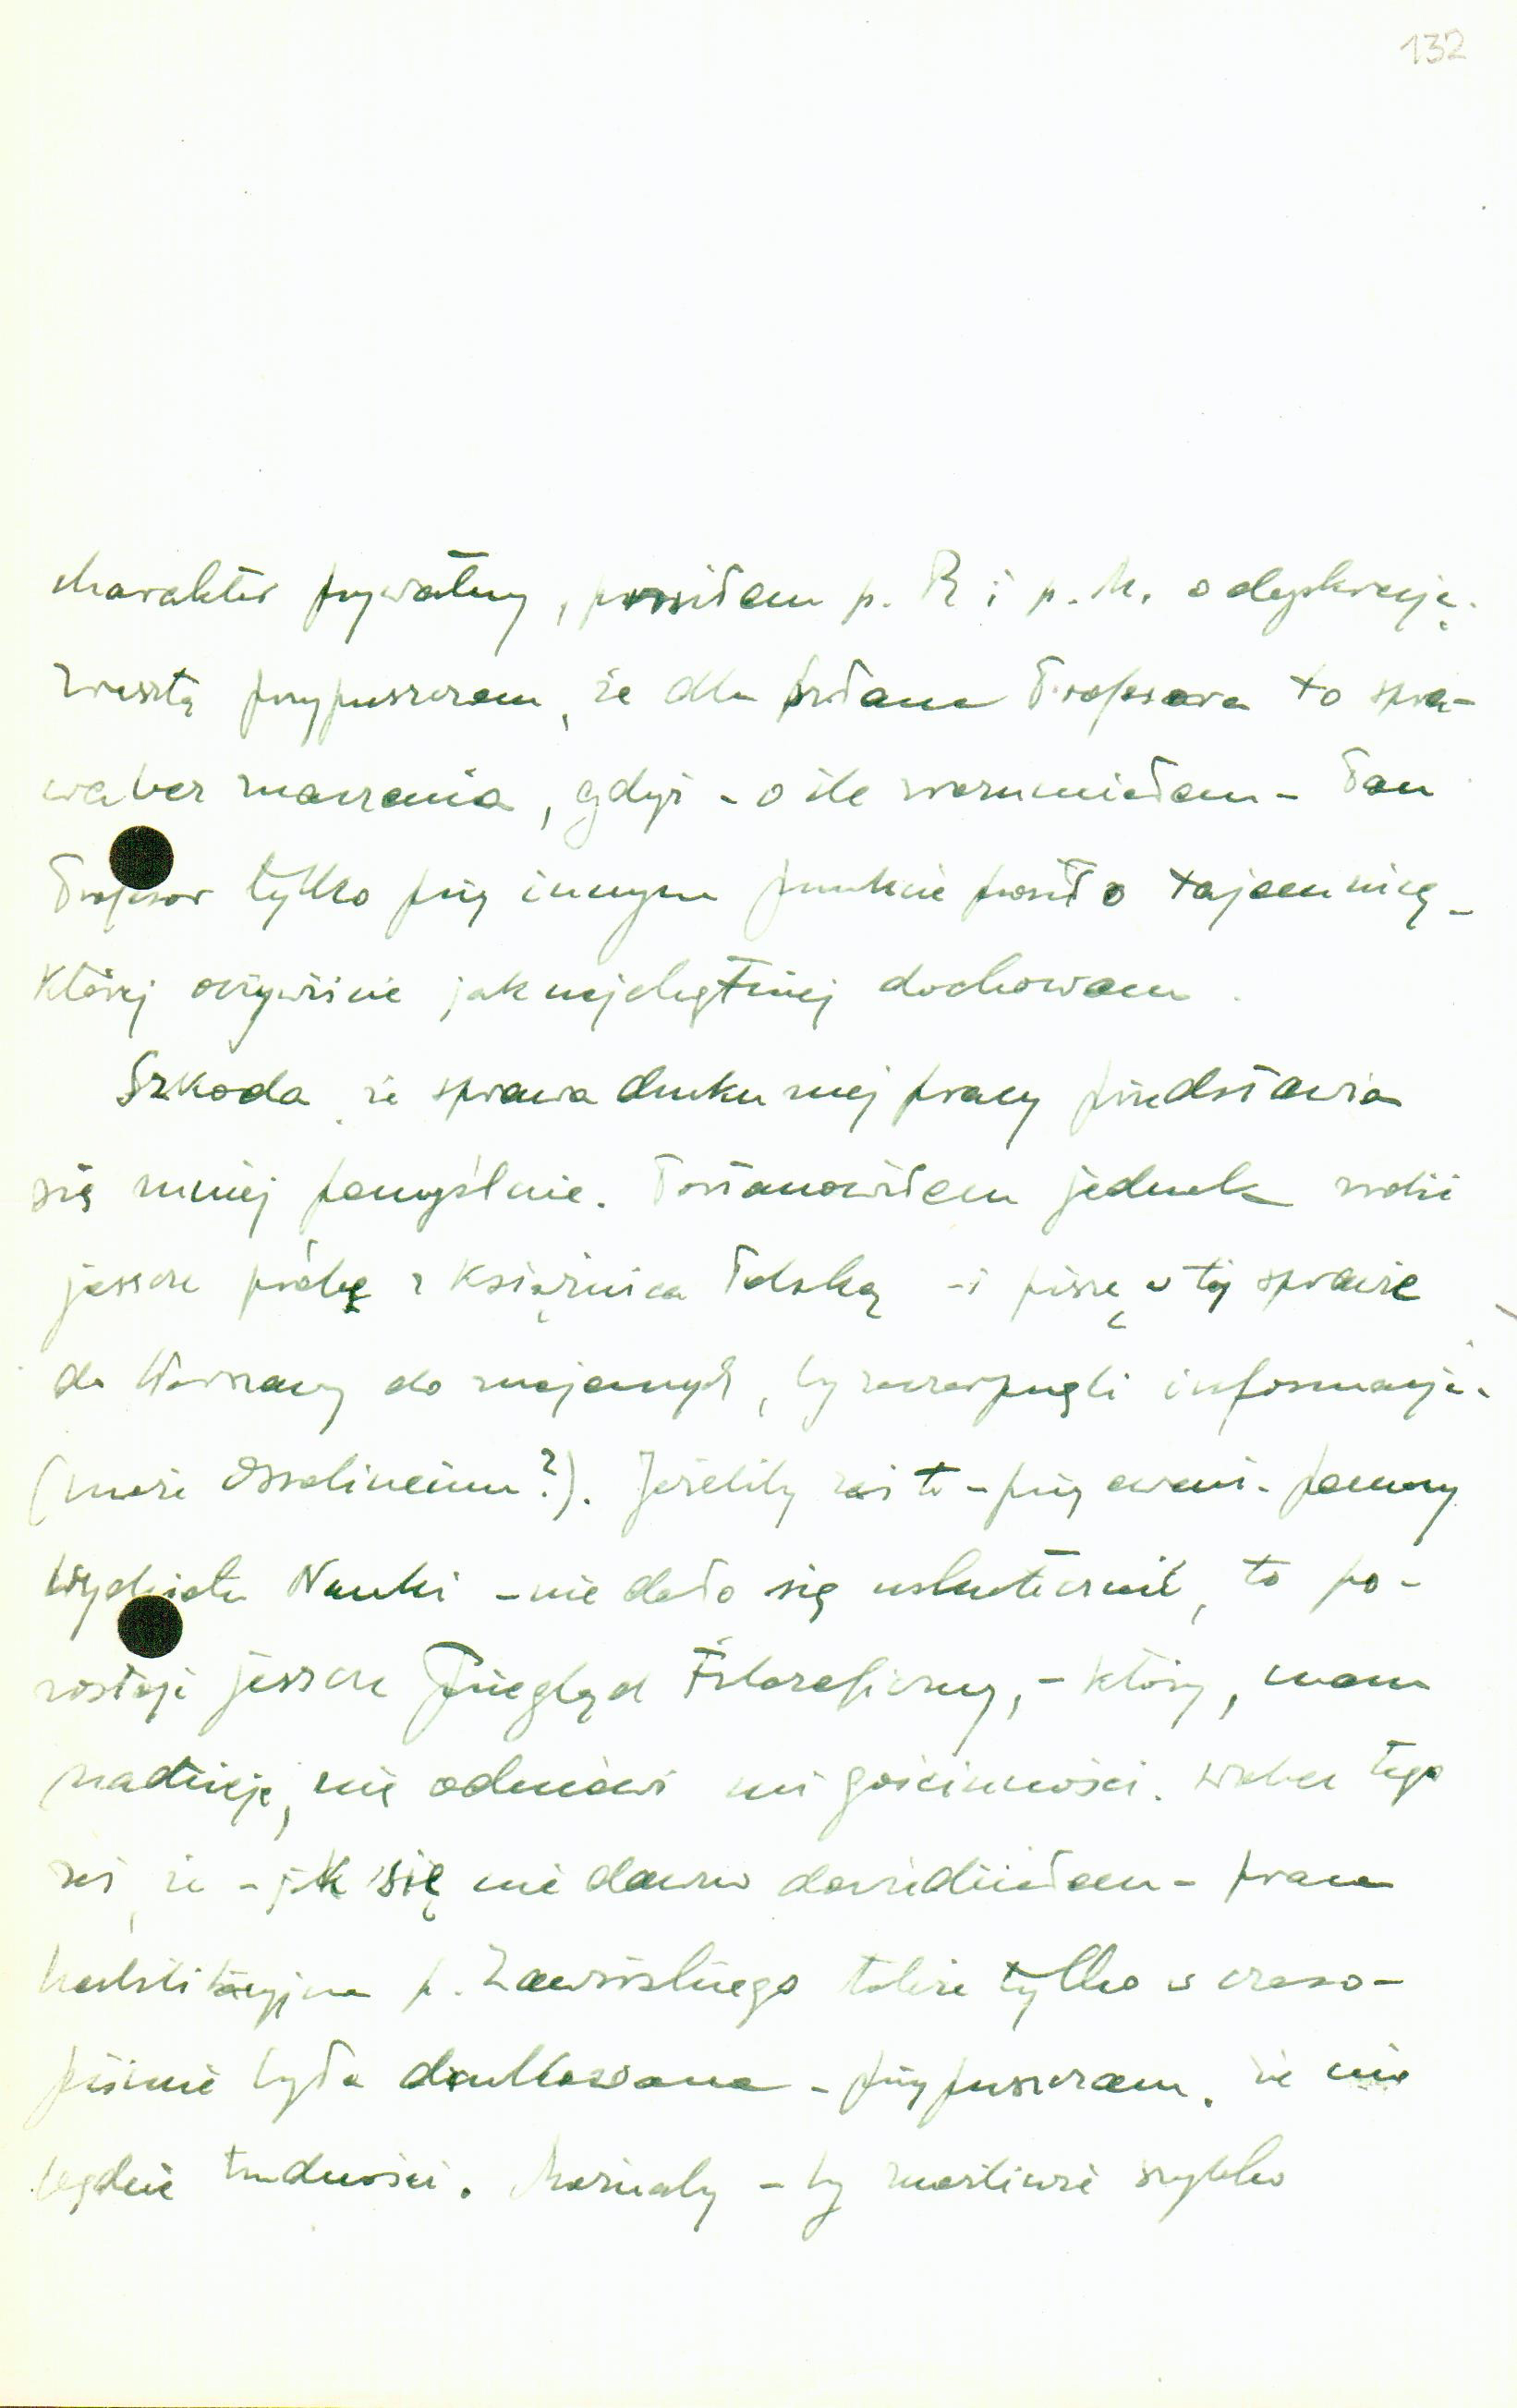 132
charakter prywatny, prosiłem p. R i p. M. o dyskrecję.
Zresztą przypuszczam, że dla Pana Profesora to spra-
wa bez znaczenia, gdyż - o ile zrozumiałem - Pan
Profesor tylko przy innym punkcie prosił o tajemnicę -
której oczywiście jak najchętniej dochowam.
Szkoda, że sprawa druku mej pracy przedstawia
się mniej pomyślnie. Postanowiłem jednak zrobić
jeszcze próbę z Książnica Polską - i piszę w tej sprawie
do Warszawy do znajomych, by zaczerpnęli informacji.
(może Ossolineum?). Jeżeliby zaś to - przy ewent. pomocy
Wydziału Nauki - nie dało się uskutecznić, to po-
zostaje jeszcze Przegląd Filozoficzny, - który, mam
nadzieję, nie odmówi mi gościnności. Wobec tego
zaś, że - jak się nie dawno dowiedziałem - praca
habilitacyjna p. Zawirskiego także tylko w czaso-
piśmie była drukowana - przypuszczam, że nie
będzie trudności. Możnaby - by możliwie szybko